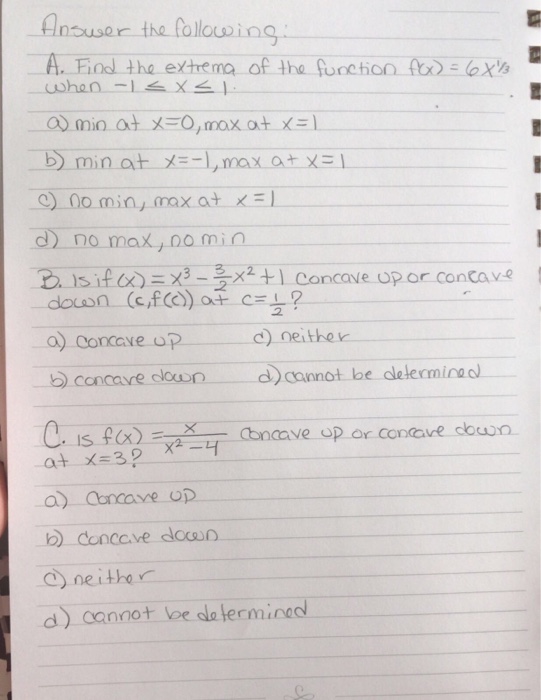 Answer the following:
A. Find the extrema of the function f(x) = 6x^1/3
when -1 ≤ x ≤ 1.
a) min at x=0, max at x=1
b) min at x=-1, max at x=1
c) no min, max at x=1
d) no max, no min
B. Is if f(x) = x³ - 3/2 x² + 1 concave up or concave
down (c, f(c)) at c = 1/2 ?
a) concave up c) neither
b) concave down d) cannot be determined
C. Is f(x) = x/(x² - 4) concave up or concave down
at x=3?
a) concave up
b) concave down
c) neither
d) cannot be determined